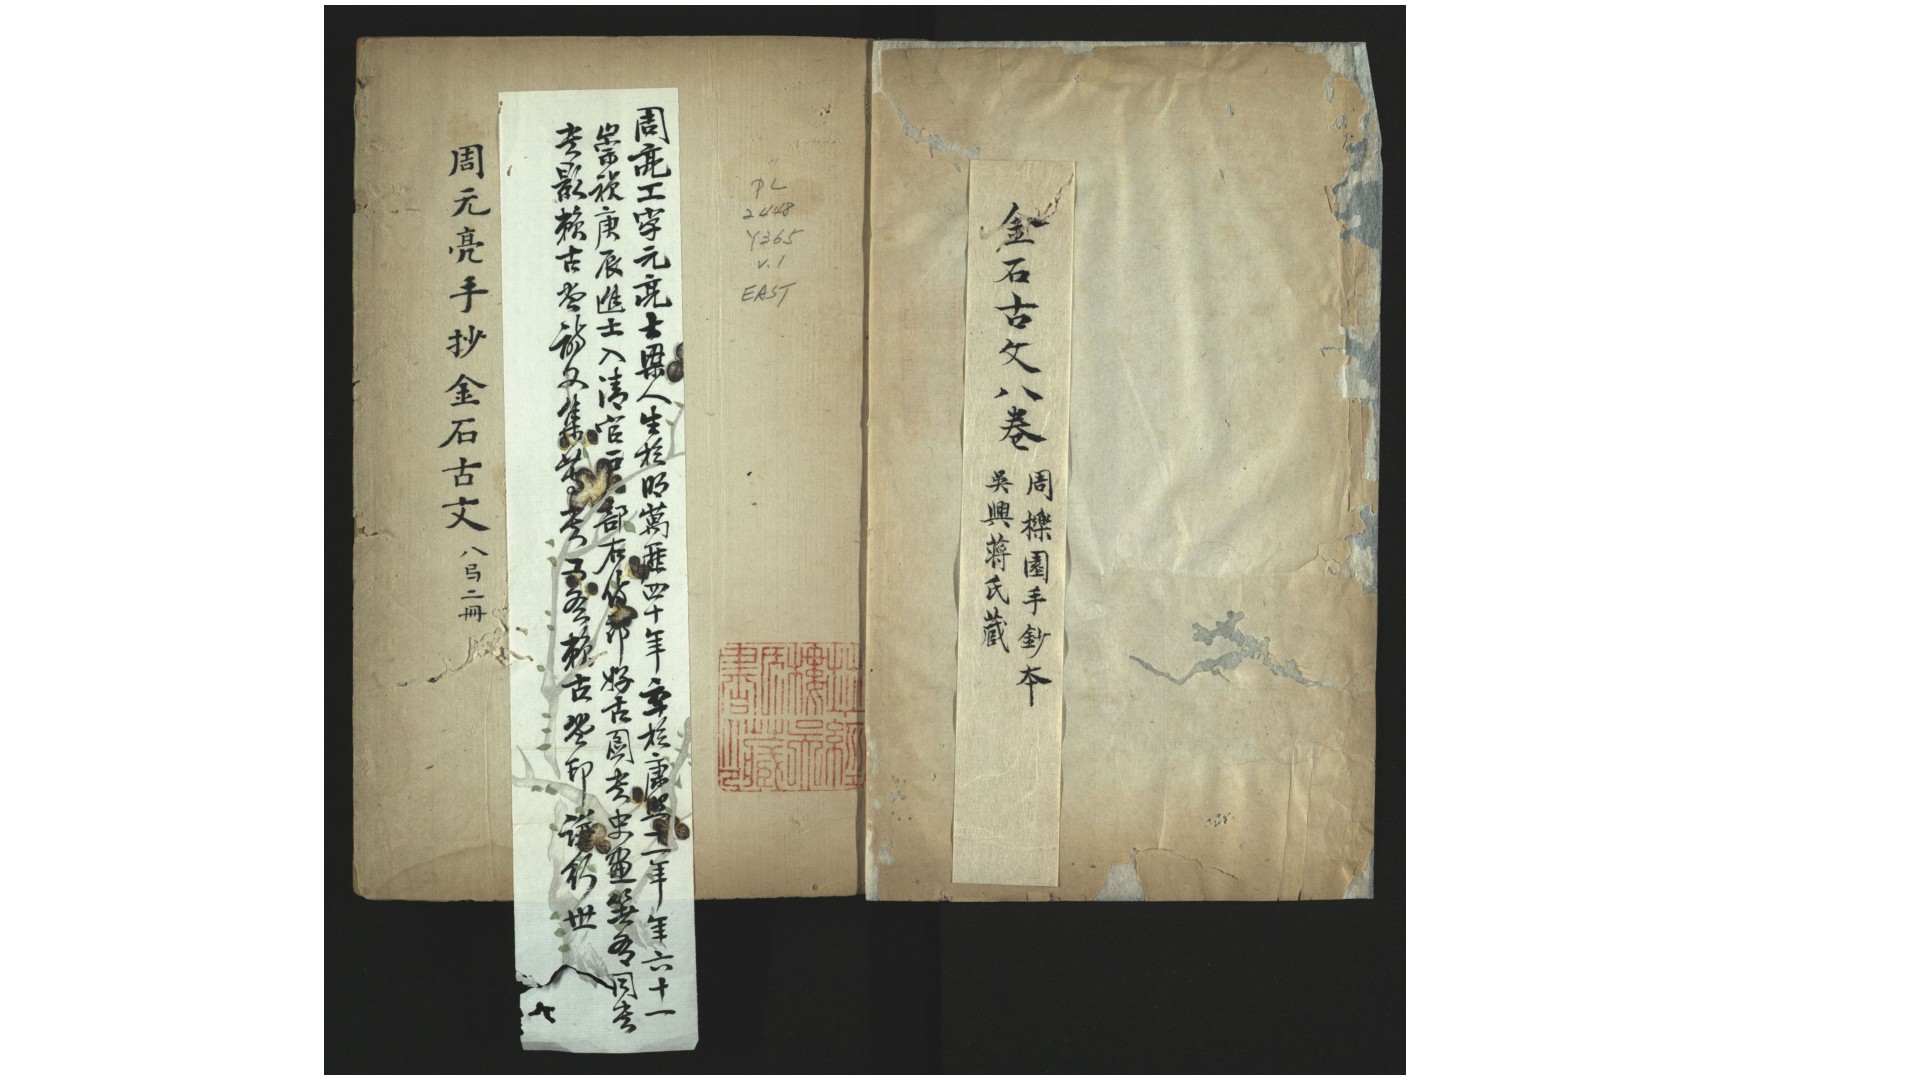 金石古文八卷
周櫟園手鈔本
吳興蔣氏藏
PL
2448
Y365
v.1
EAST
周亮工字元亮大梁人生於明萬曆四十年卒於康熙十一年年六十一
崇禎庚辰進士入清官戶部右侍郎好古圖書史畫無不同者
書影賴古堂詩文集等書又有賴古堂印譜行世
周元亮手抄金石古文
八弓二冊